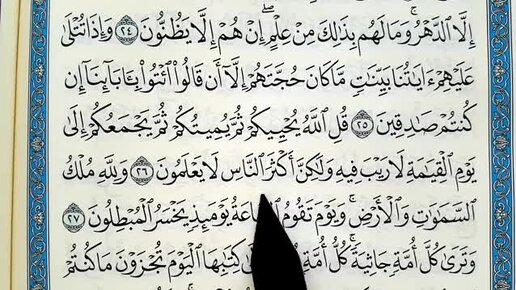 إِلَّا ٱلدَّهْرُ ۚ وَمَا لَهُم بِذَٰلِكَ مِنْ عِلْمٍ ۖ إِنْ هُمْ إِلَّا يَظُنُّونَ ٢٤ وَإِذَا تُتْلَىٰ
عَلَيْهِمْ ءَايَٰتُنَا بَيِّنَٰتٍ مَّا كَانَ حُجَّتَهُمْ إِلَّآ أَن قَالُوا۟ ٱئْتُوا۟ بِـَٔابَآئِنَآ إِن
كُنتُمْ صَٰدِقِينَ ٢٥ قُلِ ٱللَّهُ يُحْيِيكُمْ ثُمَّ يُمِيتُكُمْ ثُمَّ يَجْمَعُكُمْ إِلَىٰ
يَوْمِ ٱلْقِيَٰمَةِ لَا رَيْبَ فِيهِ وَلَٰكِنَّ أَكْثَرَ ٱلنَّاسِ لَا يَعْلَمُونَ ٢٦ وَلِلَّهِ مُلْكُ
ٱلسَّمَٰوَٰتِ وَٱلْأَرْضِ ۚ وَيَوْمَ تَقُومُ يَوْمَئِذٍ يَخْسَرُ ٱلْمُبْطِلُونَ ٢٧
وَتَرَىٰ كُلَّ أُمَّةٍ جَاثِيَةً ۚ كُلُّ أُمَّةٍ كِتَٰبِهَا ٱلْيَوْمَ تُجْزَوْنَ مَا كُنتُمْ